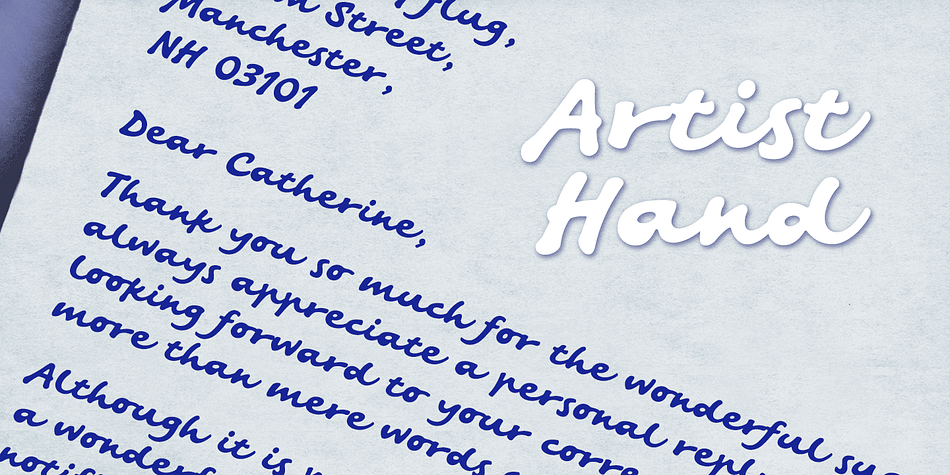 Street,
Manchester,
NH 03101
Dear Catherine,
Thank you so much for the wonderful
always appreciate a personal
looking forward to your
more than mere words
Although it is
a
Artist
Hand